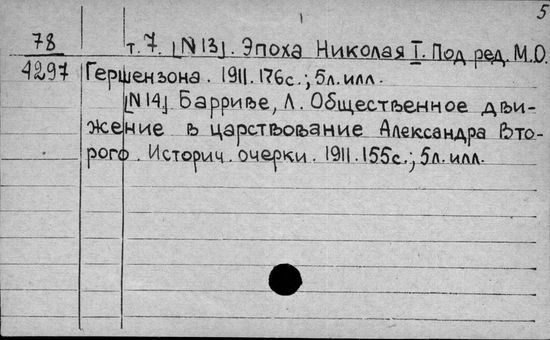 5
78 т. 7. [N 13]. Эпоха Николая I. Под ред. М.О.
4297 Гершензона. 1911. 176с.; 5л. илл.
[N 14]. Барриве, Л. Общественное дви-
жение в царствование Александра Вто-
рого. Историч. очерки. 1911. 155с.; 5л. илл.